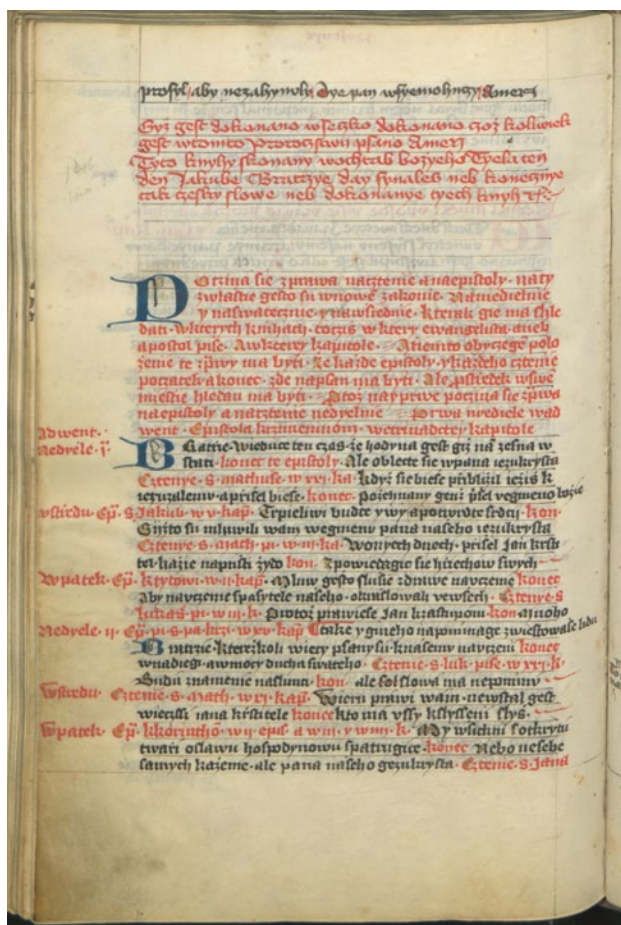 prosyl aby nezahynuly Dye pan wssyemohuzy Amen
Gyz gest dokonano wseczko dokonano czoz koliwiek
gest wtomto Prorocstwu psano Amen
Tyto knyhy skonany wochtab bozyeho Tyela ten
den Jakube Bratrzye day synaleb neb konecznye
tak czesky slowe neb dokonanye tyech knyh
Poczina sie zprawa nacztenie anaepistoly naty
zwlastie gesto su wnowe zakonie Naniedielnie
y naswatecznie ynawsiednie kterak gie ma shle
dati wkterych knihach toczis wktery ewangelista aneb
apostol pise Awkterey kapitole Atiemto obyczege polo
zenie te zprawy ma byti Ze kazde epistoly ykazdeho cztenie
poczatek akonec zde napsan ma byti Ale postredek wswe
miestie hledan ma byti Protoz najprwe poczina sie zprawa
naepistoly a nacztenie nedyelnie Prwa nediele wad
went Epistola krzimeninom wetrinadctey kapitole
Adwent
Nedyele i
Bratrie wieduce ten czas ze hodyna gest giz na zesna w
stati konec te epistoly Ale oblecte sie wpana iezukrysta
Cztenye s mathuse w xxi ka kdyz sie biese priblizil iezis k
ieruzalemu aprisel biese konec pozehnany genz prsel wegmeno bozie
wstredu Ep s Jakub w v kap Trpeliwi budte ywy apotwrdte srdci kon
Giito su mluwili wam wegmenu pana naseho iezukrysta
Cztenye s math pi w iii ka Wonych dnech prisel Jan krsti
tel kaze napusti zydo kon zpowiedagie sie hrzechow swych
Wpatek Ep ktytowi w ii kap Mluw gesto slusie zdrawe nauczenie konec
Aby nauczenie spasytele naseho okraslowali wewsech Cztenye s
lukas pi w iii k Protoz prawiese Jan kzastupom kon Amnoho
Nedyele ii Ep pi s pa krzi w xv kap take y gineho napominage zwiestowase lidu
Bratrie kterezkoli wiecy psany su knasemu nauczeni konec
wnadiegi awmocy ducha swateho Cztenie s luk pise w xxi k
Budu znamenie naslunci kon ale sol slowa ma nepominu
Wstredu Cztenie s math w xi kap Wieru prawi wam newstal gest
wieczssi jana krstitele konec kto ma ussy kslysseni slys
Wpatek Ep kkorzintho w ii epis a w iii y w iiii k A my wsichni sotkrytu
twari oslawu hospodynowu spatrugice konec Nebo nesebe
samych kazeme ale pana naseho gezukrysta Cztenie s Jana